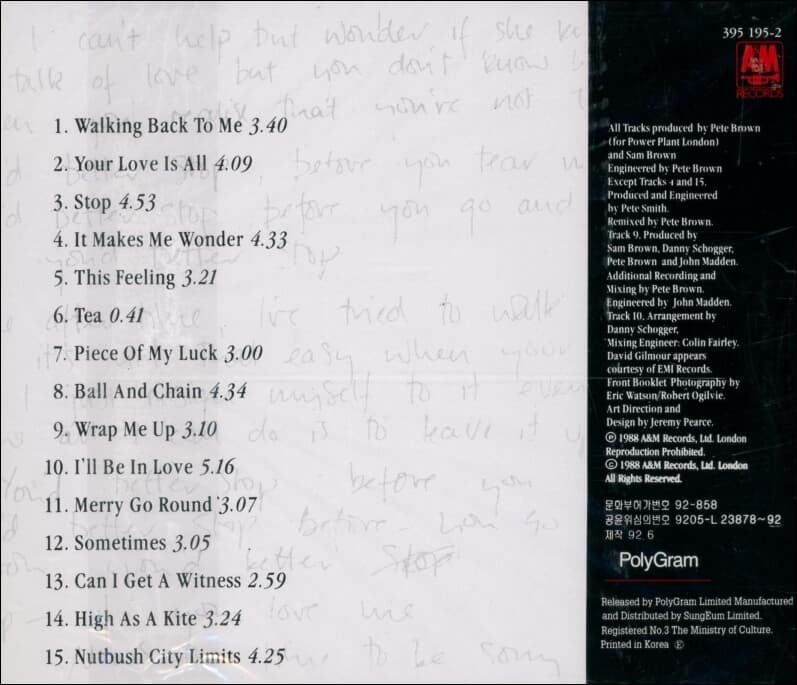 I can't help but wonder if she
talk of love but you don't know
that you're not
better stop, before you tear
better stop before you go and
better stop
I've tried to walk
easy when your
myself to it
do is to leave it
better stop before you
better stop before you go
you'd better stop
love me
to be sorry
1. Walking Back To Me 3.40
2. Your Love Is All 4.09
3. Stop 4.53
4. It Makes Me Wonder 4.33
5. This Feeling 3.21
6. Tea 0.41
7. Piece Of My Luck 3.00
8. Ball And Chain 4.34
9. Wrap Me Up 3.10
10. I'll Be In Love 5.16
11. Merry Go Round 3.07
12. Sometimes 3.05
13. Can I Get A Witness 2.59
14. High As A Kite 3.24
15. Nutbush City Limits 4.25
395 195-2
A&M
RECORDS
All Tracks produced by Pete Brown
(for Power Plant London)
and Sam Brown
Engineered by Pete Brown
Except Tracks 4 and 15.
Produced and Engineered
by Pete Smith.
Remixed by Pete Brown.
Track 9, Produced by
Sam Brown, Danny Schogger,
Pete Brown and John Madden.
Additional Recording and
Mixing by Pete Brown.
Engineered by John Madden.
Track 10, Arrangement by
Danny Schogger,
Mixing Engineer: Colin Fairley.
David Gilmour appears
courtesy of EMI Records.
Front Booklet Photography by
Eric Watson/Robert Ogilvie.
Art Direction and
Design by Jeremy Pearce.
℗ 1988 A&M Records, Ltd. London
Reproduction Prohibited.
© 1988 A&M Records, Ltd. London
All Rights Reserved.
문화부허가번호 92-858
공윤위심의번호 9205-L 23878~92
제작 92.6
PolyGram
Released by PolyGram Limited Manufactured
and Distributed by SungEum Limited.
Registered No.3 The Ministry of Culture.
Printed in Korea Ⓔ